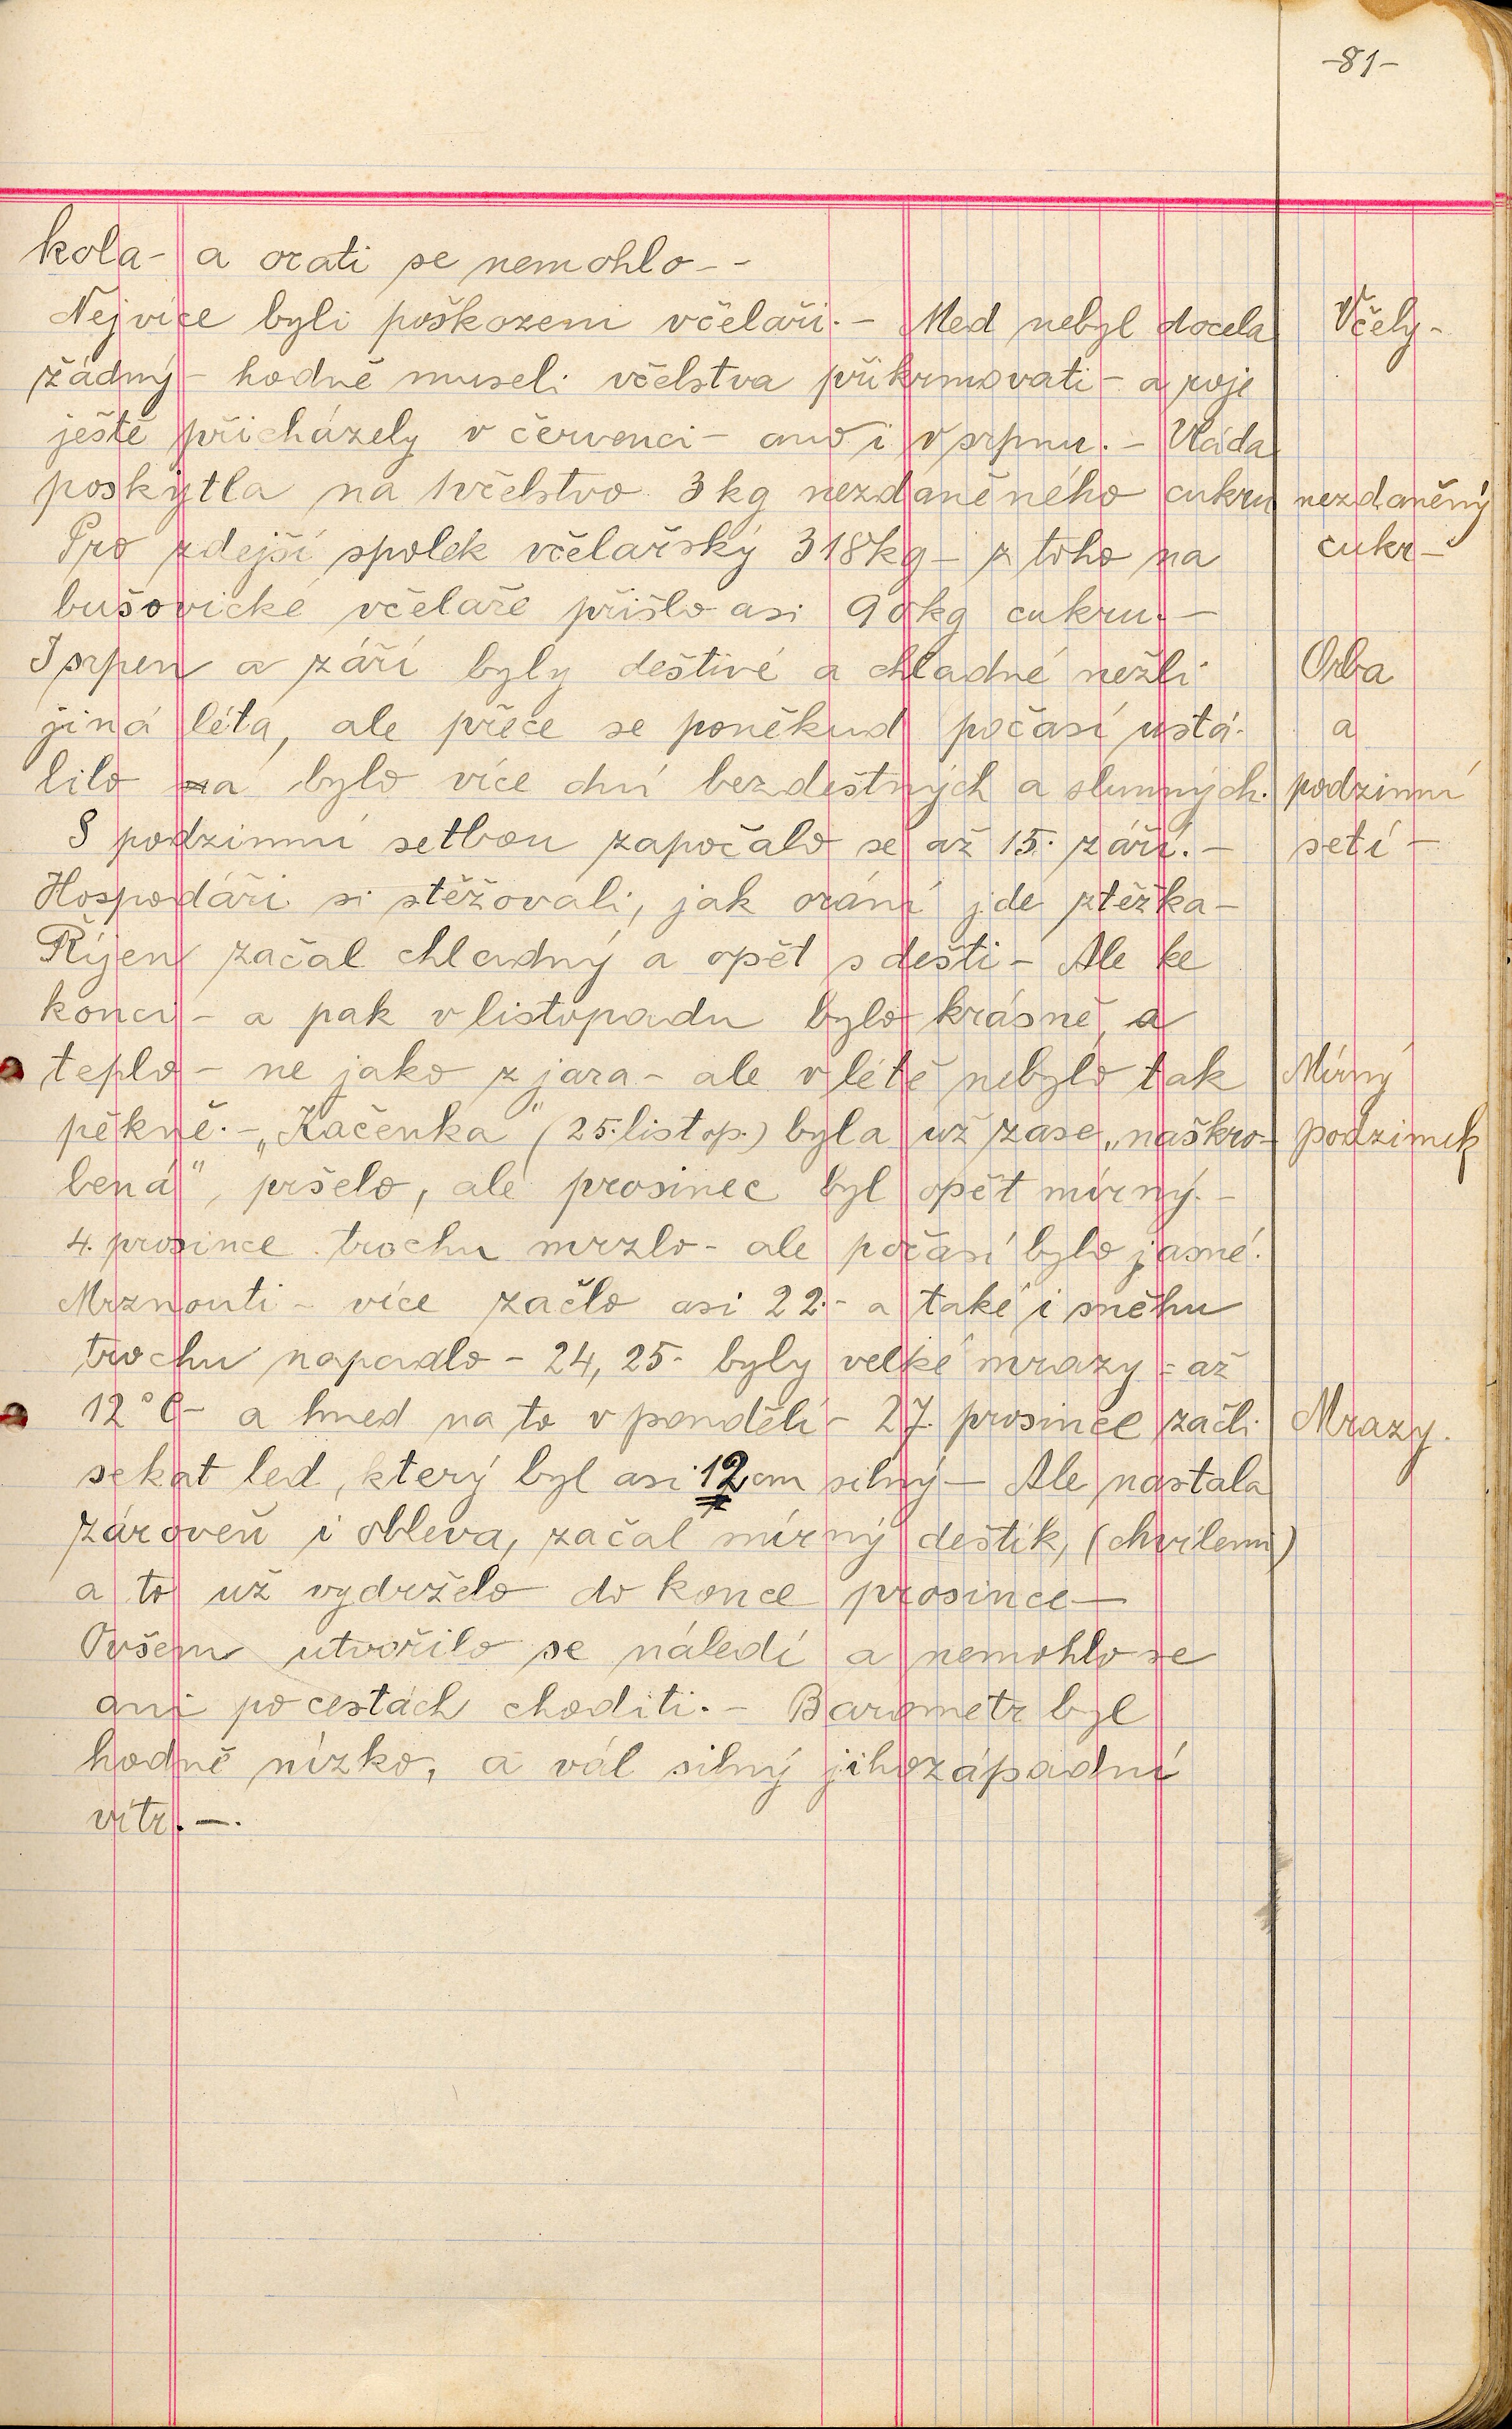 -81-
kola- a orati se nemohlo--
Nejvíce byli poškozeni včelaři.- Med nebyl docela
Včely-
žádný- hodně museli včelstva přikrmovati- a roje
ještě přicházely v červenci- ano i v srpnu.- Vláda
poskytla na 1včelstvo 3kg nezdaněného cukru
nezdaněný
Pro zdejší spolek včelařský 318kg- z toho na
cukr-
bušovické včelaře přišlo asi 90kg cukru.-
I srpen a září byly deštivé a chladné nežli
Orba
jiná léta, ale přece se poněkud počasí ustá-
a
lilo a bylo více dní bezdeštných a slunných.
podzimní
S podzimní setbou započalo se až 15. září.-
setí-
Hospodáři si stěžovali, jak orání jde ztěžka-
Říjen začal chladný a opět s dešti- Ale ke
konci- a pak v listopadu bylo krásně, a
teplo- ne jako z jara- ale v létě nebylo tak
Mírný
pěkně.- „Kačenka" (25.listop.) byla už zase „naškro-
podzimek
bená", pršelo, ale prosinec byl opět mírný.-
4. prosince trochu mrzlo- ale počasí bylo jasné.
Mrznouti- více začlo asi 22.- a také i sněhu
trochu napadlo- 24, 25. byly velké mrazy= až
12°C- a hned na to v pondělí- 27. prosince začli
Mrazy.
sekat led, který byl asi 12cm silný- Ale nastala
zároveň i obleva, začal mírný deštík, (chvílemi)
a to už vydrželo do konce prosince-
Ovšem utvořilo se náledí a nemohlo se
ani po cestách choditi.- Barometr byl
hodně nízko, a vál silný jihozápadní
vítr.-.